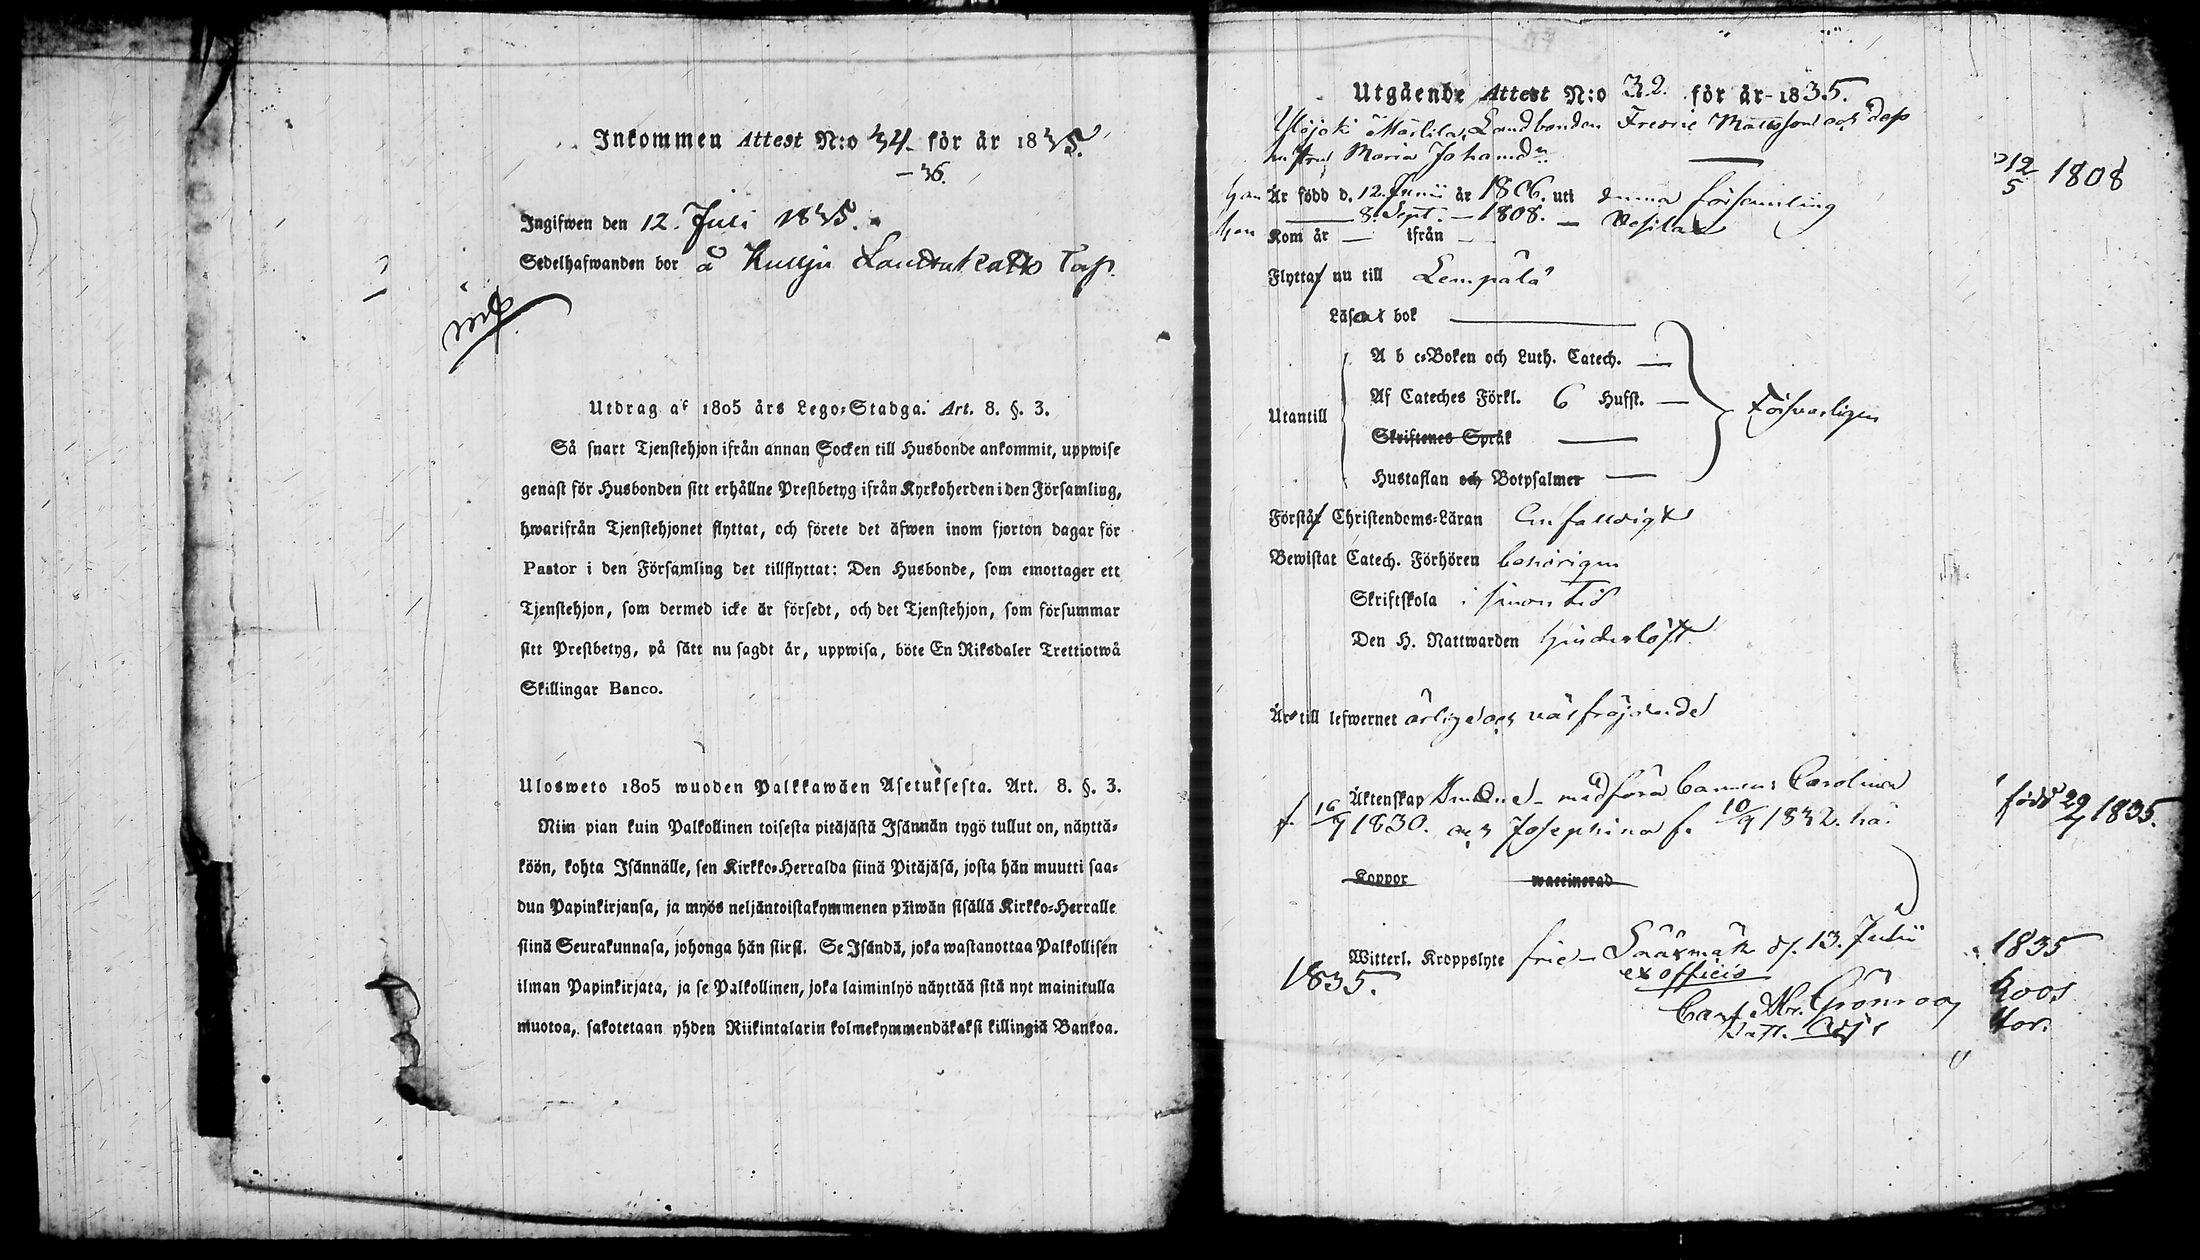 Inkommen Attest N:o 34. för år 1835.
– 36.
Ingifwen den 12. Juli 1835.
Sedelhafwanden bor å Kulju
Utdrag af 1805 års Lego-Stadga. Art. 8. §. 3.
Så snart Tjenstehjon ifrån annan Socken till Husbonde ankommit, uppwise
genast för Husbonden sitt erhållne Prestbetyg ifrån Kyrkoherden i den Församling,
hwarifrån Tjenstehjonet flyttat, och förete det äfwen inom fjorton dagar för
Pastor i den Församling det tillflyttat: Den Husbonde, som emottager ett
Tjenstehjon, som dermed icke är försedt, och det Tjenstehjon, som försummar
sitt Prestbetyg, på sätt nu sagdt är, uppwisa, böte En Riksdaler Trettiotwå
Skillingar Banco.
Ulosweto 1805 wuoden Palkkawäen Asetuksesta. Art. 8. §. 3.
Niin pian kuin Palkollinen toisesta pitäjästä Isännän tygö tullut on, näyttä-
köön, kohta Isännälle, sen Kirkko-Herralda siinä Pitäjäsä, josta hän muutti saa-
dun Papinkirjansa, ja myös neljäntoistakymmenen päiwän sisällä Kirkko-Herralle
siinä Seurakunnasa, johonga hän siirsi. Se Isändä, joka wastanottaa Palkollisen
ilman Papinkirjata, ja se Palkollinen, joka laiminlyö näyttää sitä nyt mainitulla
muotoa, sakotetaan yhden Riikintalarin kolmekymmendäkaksi killingiä Bankoa.
Utgående Attest N:o 32. för år 1835.
Landbonden Fredric Mattsson och dess
hustru Maria Johansdr
han Är född d. 12. Junii år 1806. uti denna församling
hon 8. Sept. – 1808. – Vesilax
Kom år — ifrån —
Flytta nu till Lempälä
Läsa i bok
A b c-Boken och Luth. Catech. —
Af Cateches Förkl. 6 Hufst. —
Utantill
Skriftenes Språk —
Försvarligen
Hustaflan och Botpsalmer —
Förstå Christendoms-Läran Enfaldigt
Bewistat Catech. Förhören behörigen
Skriftskola i sinom tid
Den H. Nattwarden hinderlöst
Äro till lefwernet ärlige och välfräjdade
Äktenskap bundne – medföra barnen: Carolina
f. 16/7 1830. och Josephina f. 10/9 1832. ha
Koppor waccinerad
Witterl. Kroppslyte frie – Sääxmäki d. 13. Julii
1835.
ex officio
Carl Abr. Grönroos
12/5 1808
född 29/7 1835.
1835